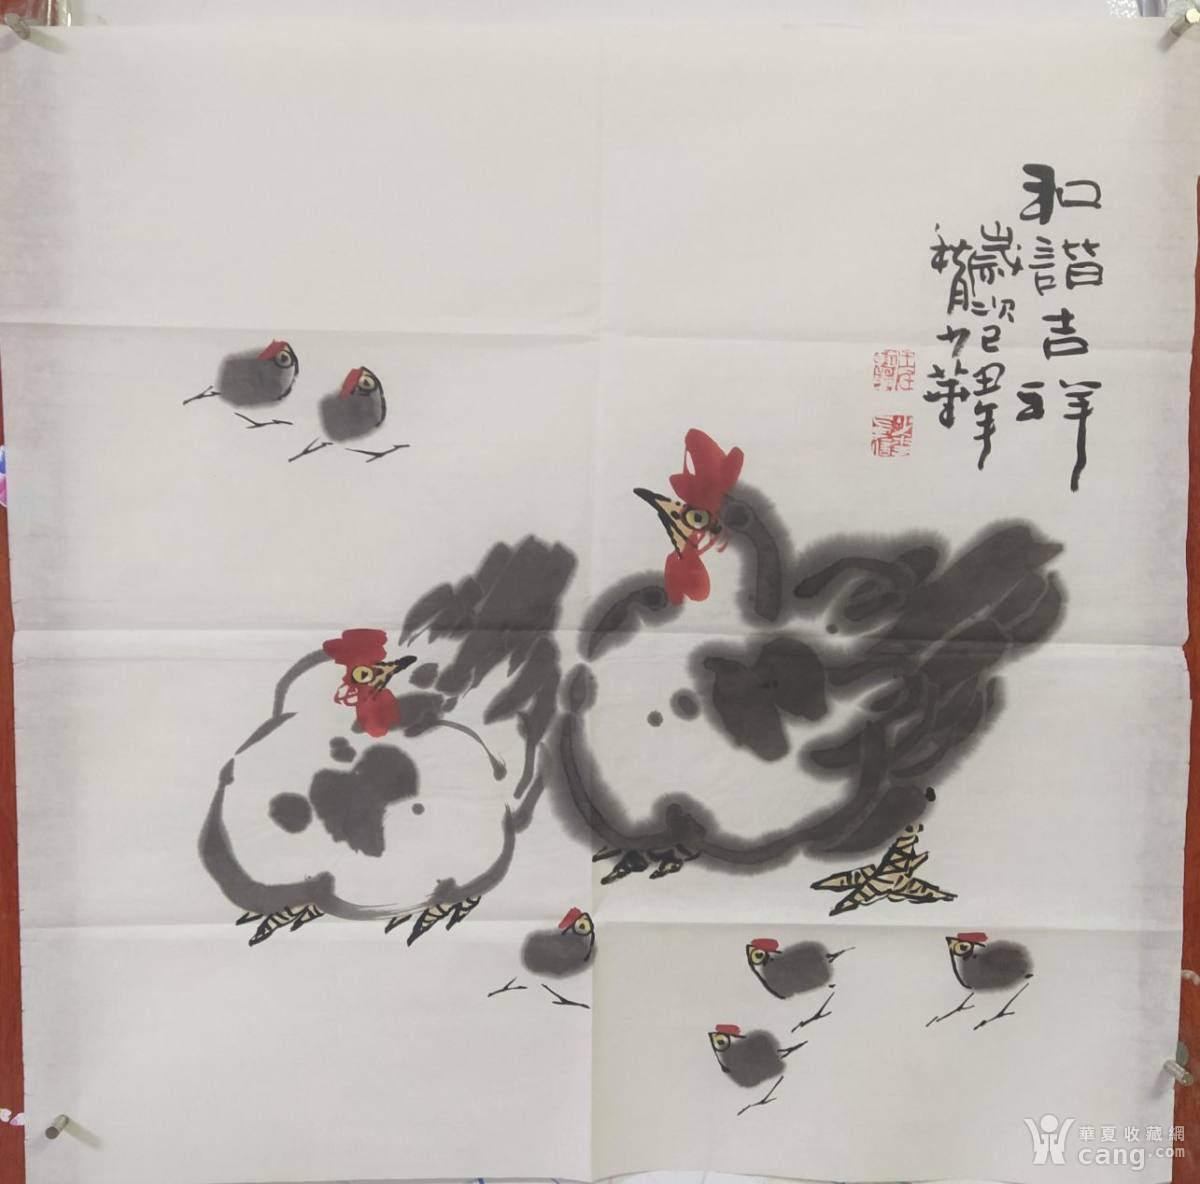 和諧吉祥
歲次己丑年
月少華
華夏收藏網
cang.com